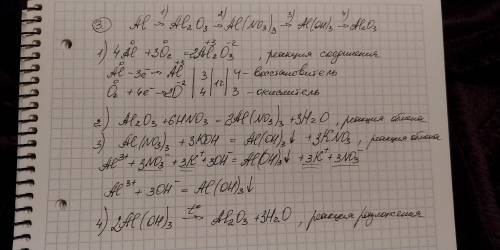 ③ Al →¹⁾ Al₂O₃ →²⁾ Al(NO₃)₃ →³⁾ Al(OH)₃ →⁴⁾ Al₂O₃
1) 4Al⁰ + 3O₂⁰ = 2Al₂⁺³O₃⁻², реакция соединения
Al⁰ - 3e⁻ → Al⁺³ | 3 | 12 | 4 - восстановитель
O₂⁰ + 4e⁻ → 2O⁻² | 4 | | 3 - окислитель
2) Al₂O₃ + 6HNO₃ - 2Al(NO₃)₃ + 3H₂O, реакция обмена
3) Al(NO₃)₃ + 3KOH = Al(OH)₃↓ + 3KNO₃, реакция обмена
Al³⁺ + 3NO₃⁻ + 3K⁺ + 3OH⁻ = Al(OH)₃↓ + 3K⁺ + 3NO₃⁻
Al³⁺ + 3OH⁻ = Al(OH)₃↓
4) 2Al(OH)₃ →t° Al₂O₃ + 3H₂O, реакция разложения